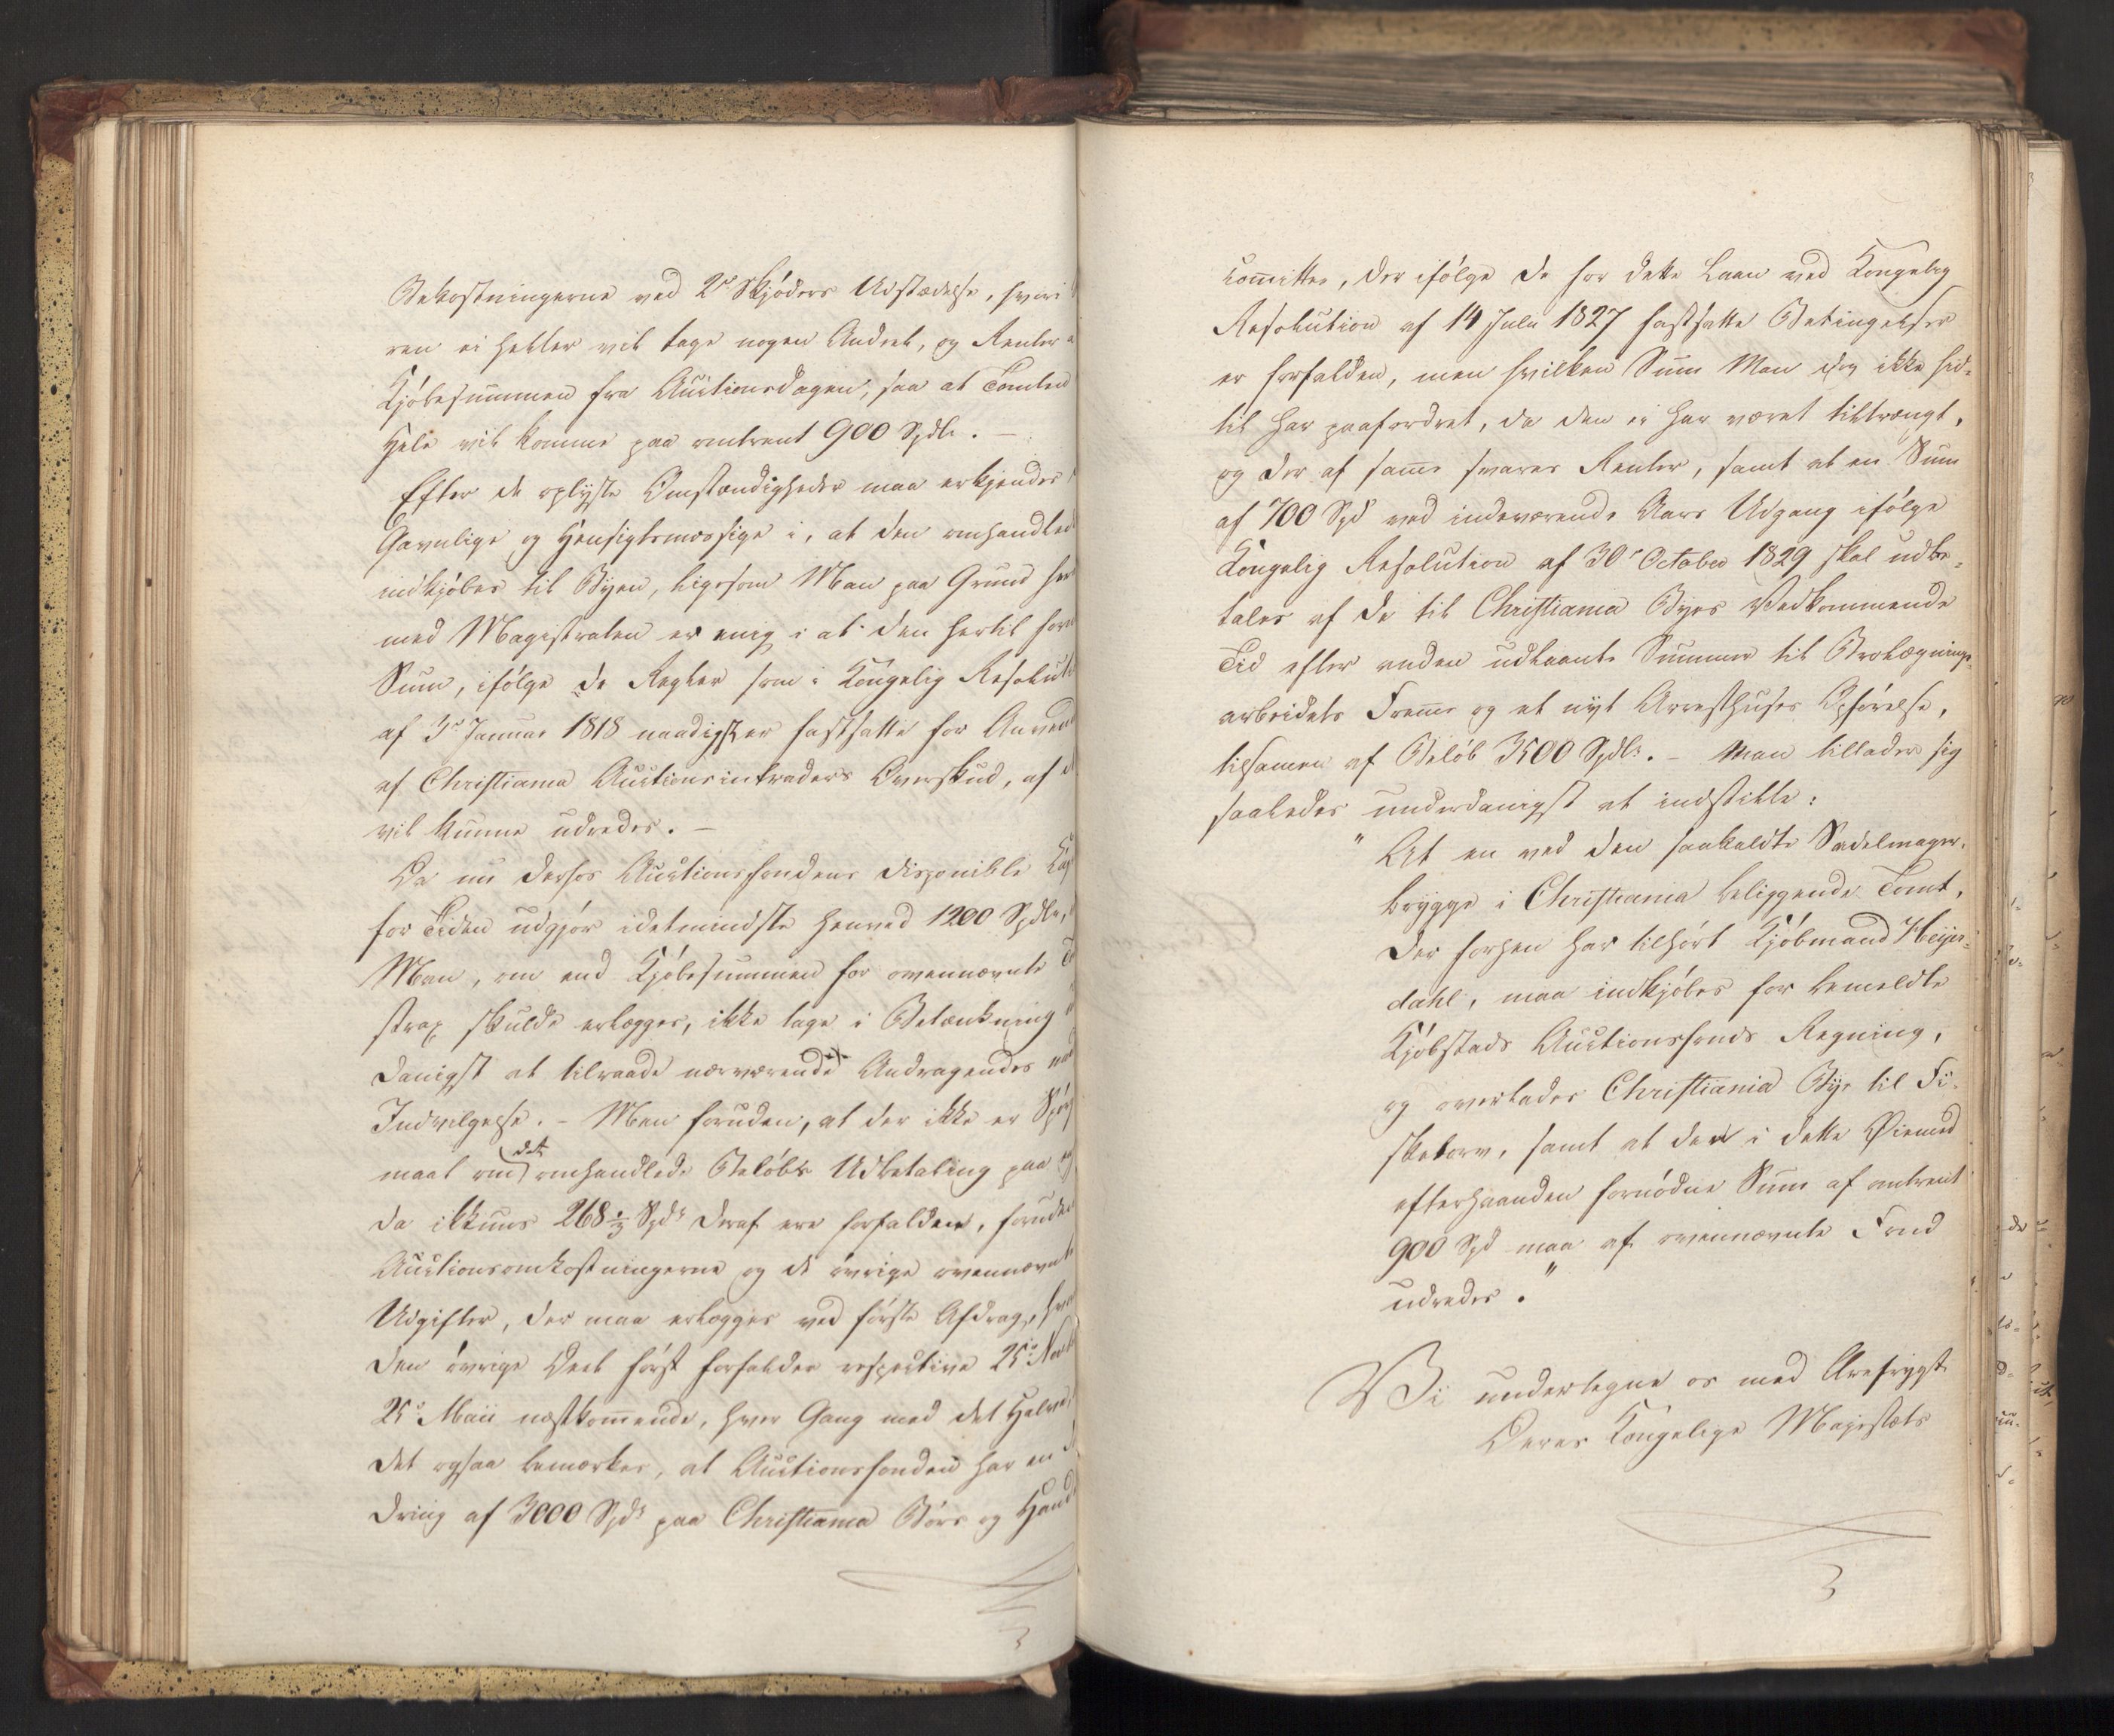 Bekostningerne ved 2de Skjøders Udstædelse, hvori
ren ei heller vil tage nogen Andeel, og Renter
Kjøbesummen fra Auctionsdagen, saa at Tomten
Hele vil komme paa omtrent 900 Spdlr. —
Efter de oplyste Omstændigheder maa erkjendes
Gavnlige og Hensigtsmæssige i, at den omhandlede
indkjøbes til Byen, ligesom Man paa Grund her
med Magistraten er enig i at den hertil for
Sum, ifølge de Regler som i Kongelig Resoluti
af 3die Januar 1818 naadigst er fastsatte for Anven
af Christiania Auctionsintraders Overskud, af
vil kunne udredes. —
Da nu derhos Auctionsfondens disponible
for Tiden udgjør idetmindste henved 1200 Spdlr,
Man, om end Kjøbesummen for ovennævnte
strax skulde erlægges, ikke tage i Betænkning
danigst at tilraade nærværende Andragendes
Indvilgelse. - Men foruden, at der ikke er Spørgs
maal om det omhandlede Beløbs Udbetaling paa
da ikkuns 268⅓ Spdr deraf ere forfalden, foruden
Auctionsomkostningerne og de øvrige ovennævnte
Udgifter, der maa erlægges ved første Afdrag, hvor
den øvrige Deel først forfalder respective 25de Nov
25de Maii næstkommende, hver Gang med det Halve,
det ogsaa bemærkes, at Auctionsfonden har en
dring af 3000 Spdr paa Christiania Børs og Hand
Committee, der ifølge de for dette Laan ved Kongelig
Resolution af 14 Julii 1827 fastsatte Betingelser
er forfalden, men hvilken Sum Man dog ikke hid-
til har paafordret, da den ei har været tiltrængt,
og der af samme svares Renter, samt at en Sum
af 700 Spd ved indeværende Aars Udgang ifølge
Kongelig Resolution af 30te October 1829 skal udbe-
tales af de til Christiania Byes Vedkommende
Tid efter anden udlaante Summer til Brolægnings-
arbeidets Fremme og et nyt Arresthuses Opførelse,
tilsammen af Beløb 3500 Spdlr. - Man tillader sig
saaledes underdanigst at indstille:
" At en ved den saakaldte Sadelmager-
brygge i Christiania beliggende Tomt,
der forhen har tilhørt Kjøbmand Heyer-
dahl, maa indkjøbes for bemeldte
Kjøbstads Auctionsfonds Regning,
og overlades Christiania Bye til Fi-
sketorv, samt at den i dette Øiemed
efterhaanden fornødne Sum af omtrent
900 Spd maa af ovennævnte Fond
udredes. "
Vi undertegne os med Ærefrygt
Deres Kongelige Majestæts